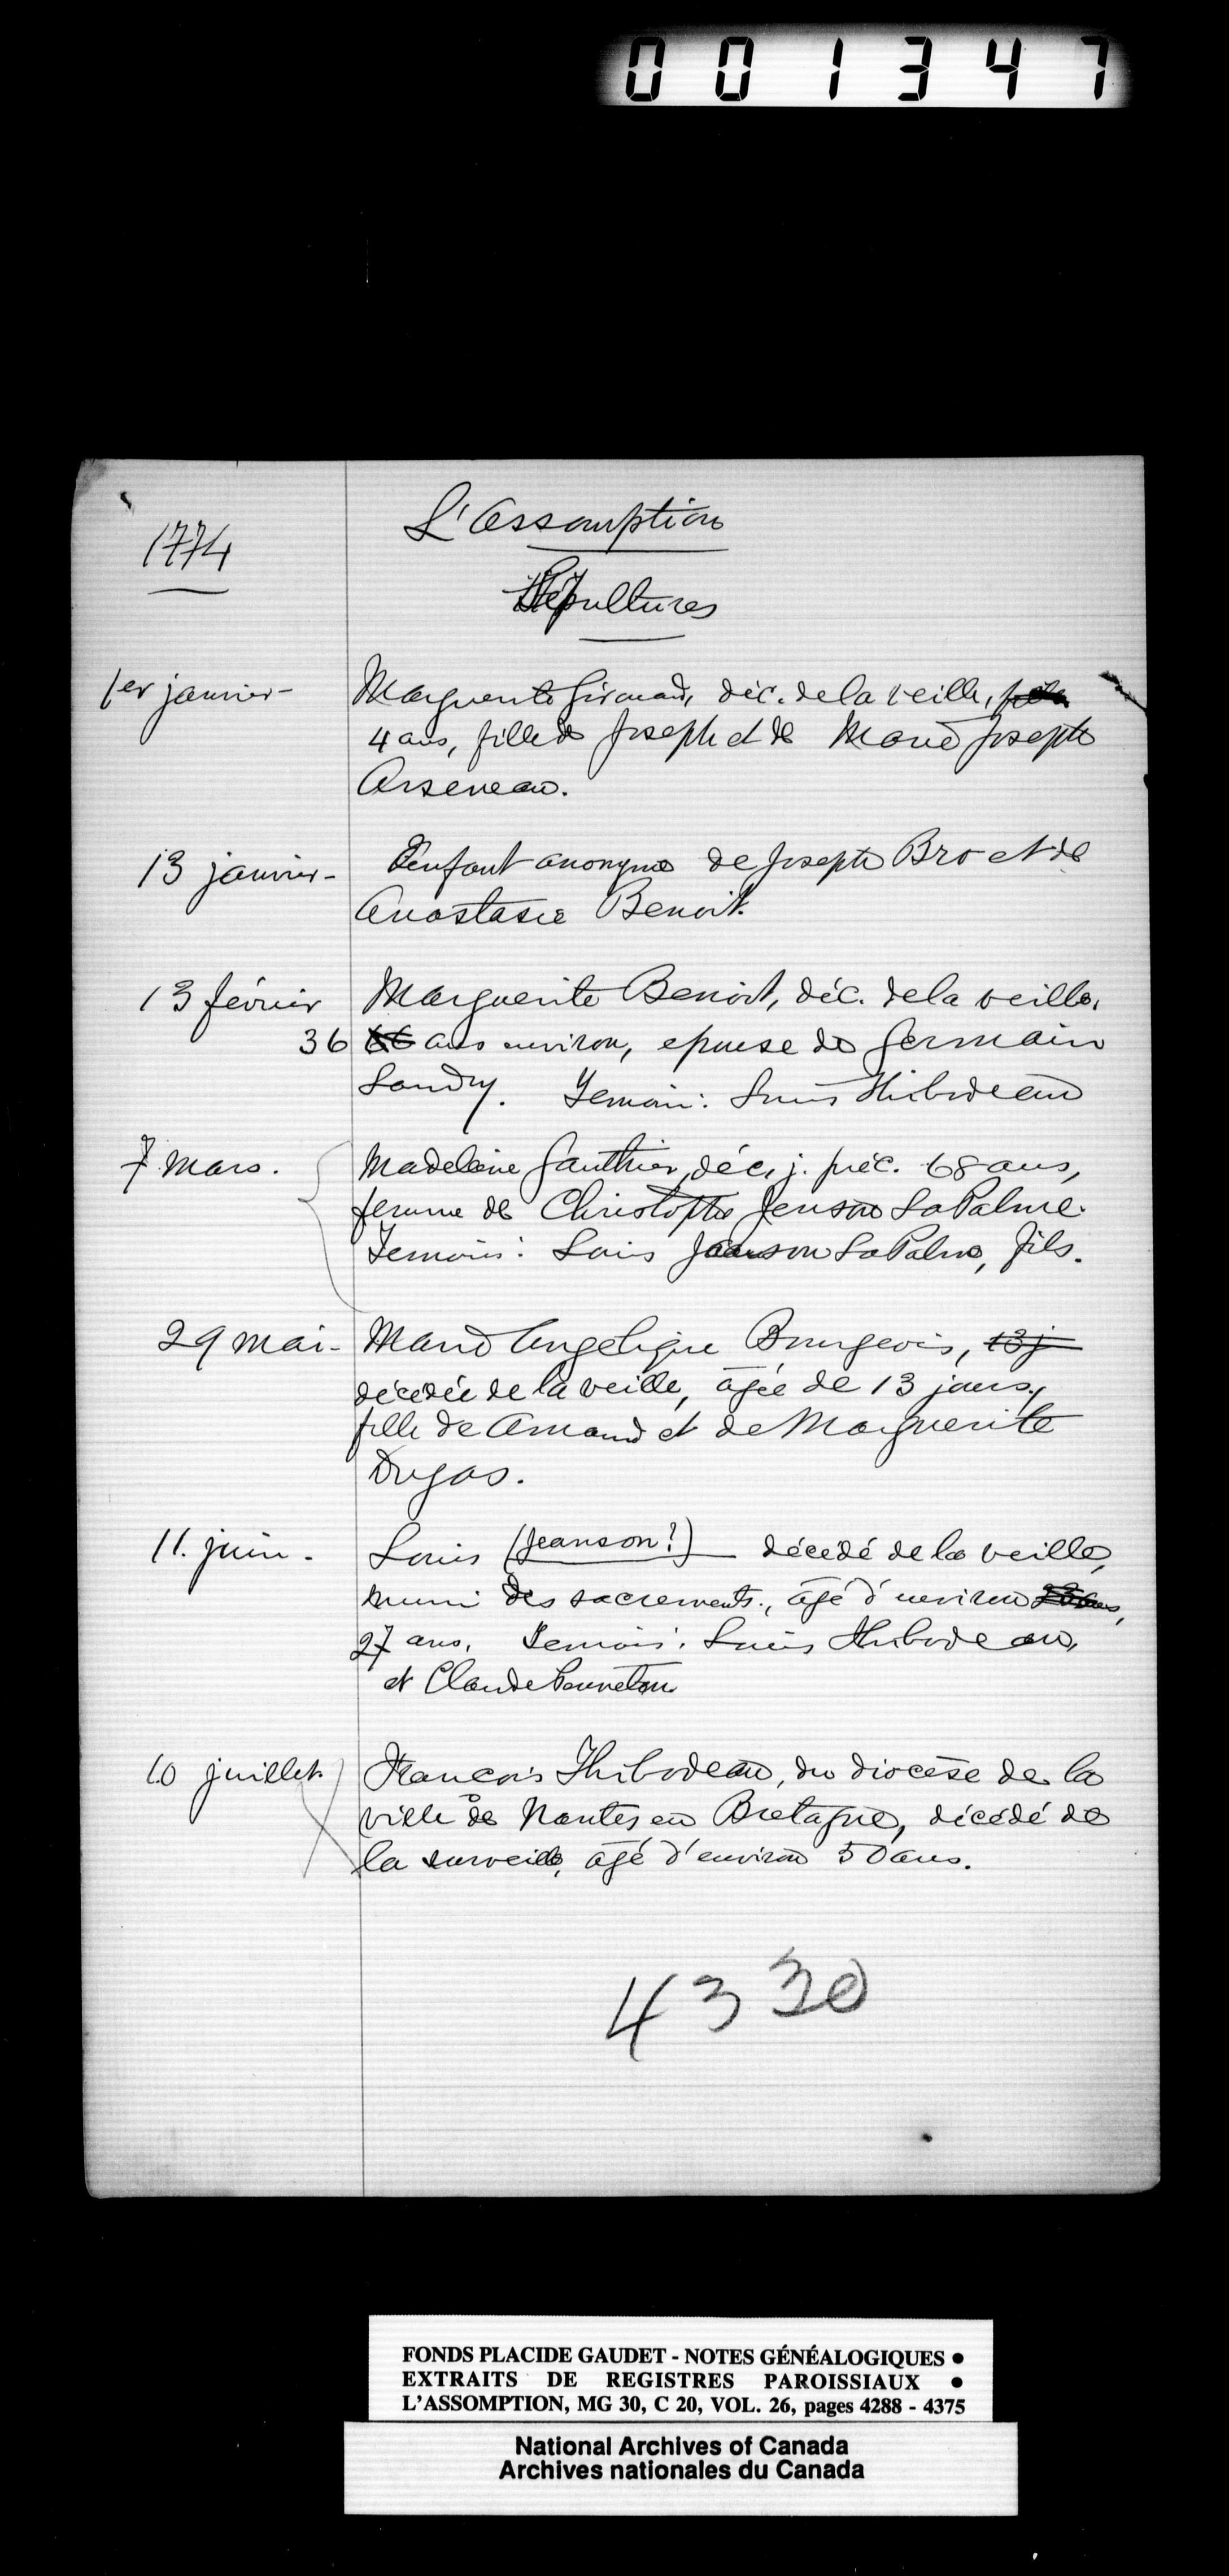 001347
1774
L'Assomption
Sépultures
1er janvier -
Marguerite Giroward, déc. de la veille,
4 ans, fille de Joseph et de Marie Josephte
Arseneau.
13 janvier -
L'enfant anonyme de Joseph Bro et de
Anastasie Benoit.
13 février
Marguerite Benoit, déc. de la veille,
36 66 ans environ, epouse de Germain
Landry. Temoin: Louis Thibodeau
7 mars.
Madeleine Gauthier, déc. j. préc. 68 ans,
femme de Christophe Jenson LaPalme.
Temoin: Louis Jeanson LaPalme, fils.
29 mai -
Marie Angelique Bourgeois, 13 j
décédée de la veille, âgée de 13 jours,
fille de Amand et de Marguerite
Dugas.
11. juin.
Louis (Jeanson?) décédé de la veille,
muni des sacrements, âgé d'environ
27 ans. Temoin: Louis Thibodeau,
et Claude
10 juillet
Francois Thibodeau, du diocèse de la
ville de Nantes en Bretagne, décédé de
la surveille, âgé d'environ 50 ans.
4330
FONDS PLACIDE GAUDET - NOTES GÉNÉALOGIQUES •
EXTRAITS DE REGISTRES PAROISSIAUX •
L'ASSOMPTION, MG 30, C 20, VOL. 26, pages 4288 - 4375
National Archives of Canada
Archives nationales du Canada